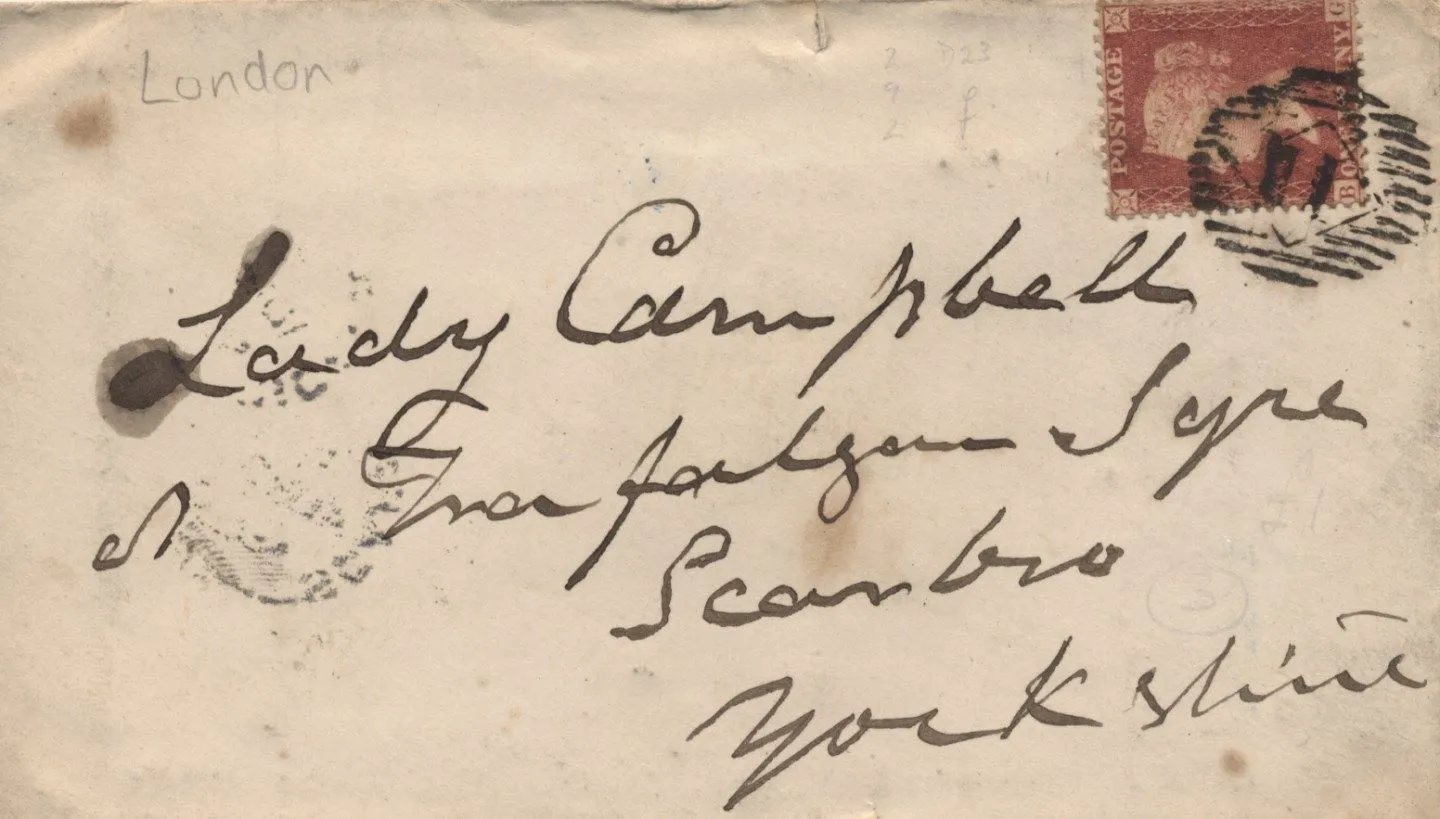 London
2 D23
9
2
POSTAGE
G
B
Lady Campbell
Trafalgar Sqre
Scarbro
Yorkshire